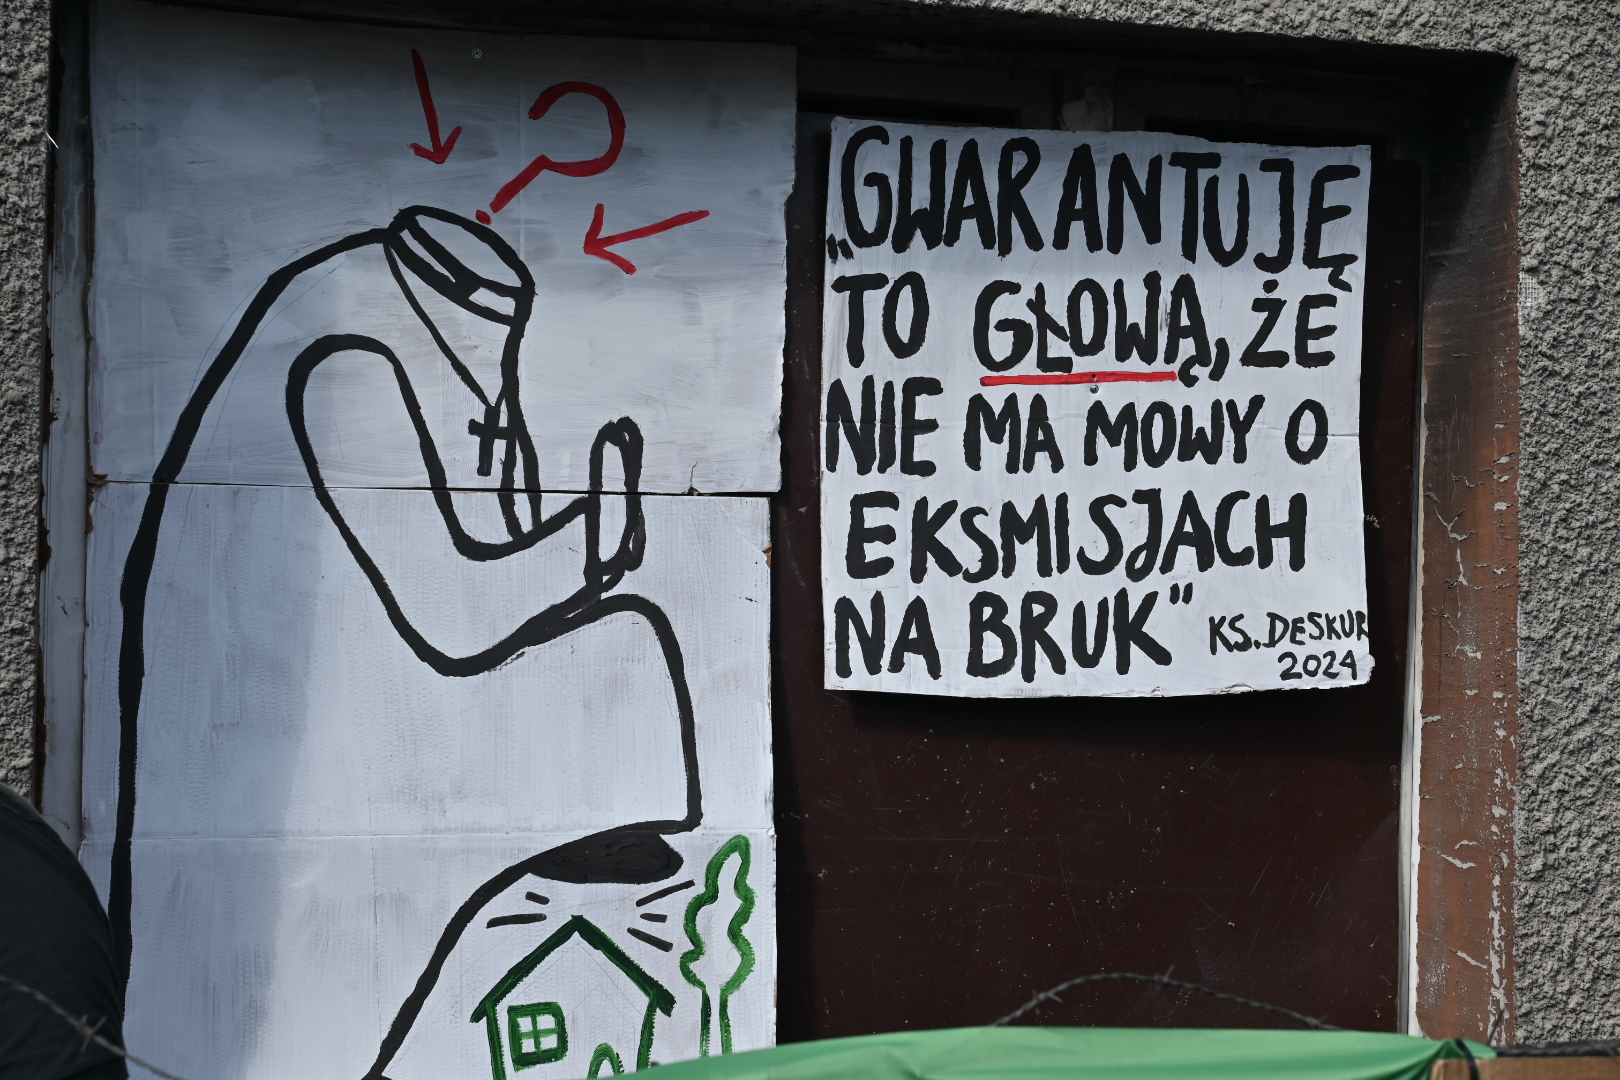 „GWARANTUJĘ
TO GŁOWĄ, ŻE
NIE MA MOWY O
EKSMISJACH
NA BRUK" KS. DESKUR
2024